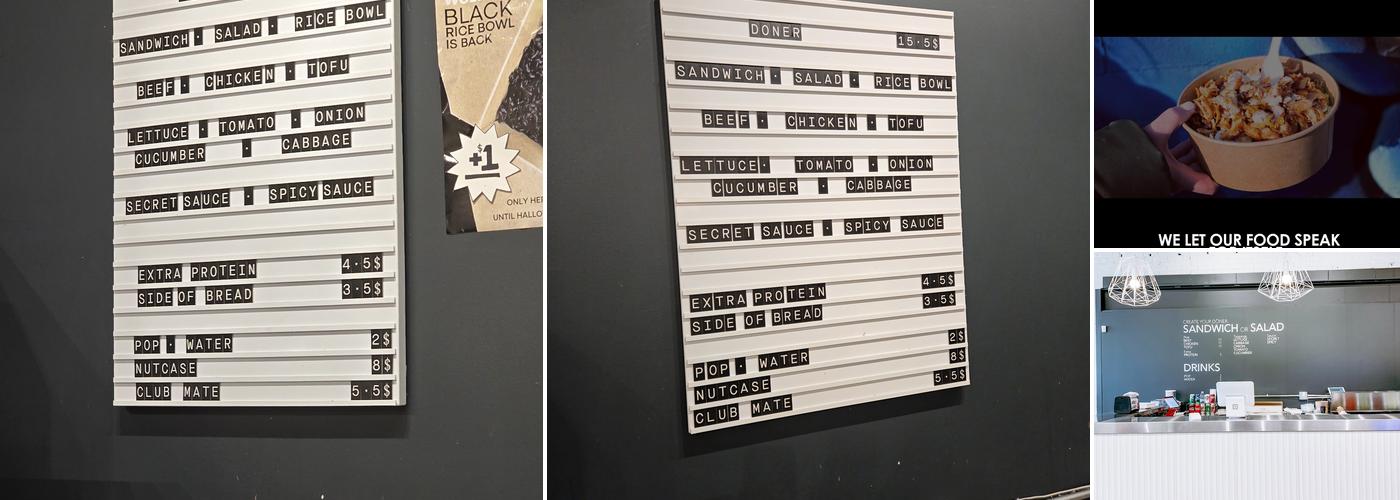 SANDWICH · SALAD · RICE BOWL
BEEF · CHICKEN · TOFU
LETTUCE · TOMATO · ONION
CUCUMBER · CABBAGE
SECRET SAUCE · SPICY SAUCE
EXTRA PROTEIN 4·5$
SIDE OF BREAD 3·5$
POP · WATER 2$
NUTCASE 8$
CLUB MATE 5·5$
BLACK
RICE BOWL
IS BACK
$
+1
ONLY
UNTIL
DONER 15·5$
SANDWICH · SALAD · RICE BOWL
BEEF · CHICKEN · TOFU
LETTUCE · TOMATO · ONION
CUCUMBER · CABBAGE
SECRET SAUCE · SPICY SAUCE
EXTRA PROTEIN 4·5$
SIDE OF BREAD 3·5$
POP · WATER 2$
NUTCASE 8$
CLUB MATE 5·5$
WE LET OUR FOOD SPEAK
CREATE YOUR DÖNER
SANDWICH OR SALAD
DRINKS